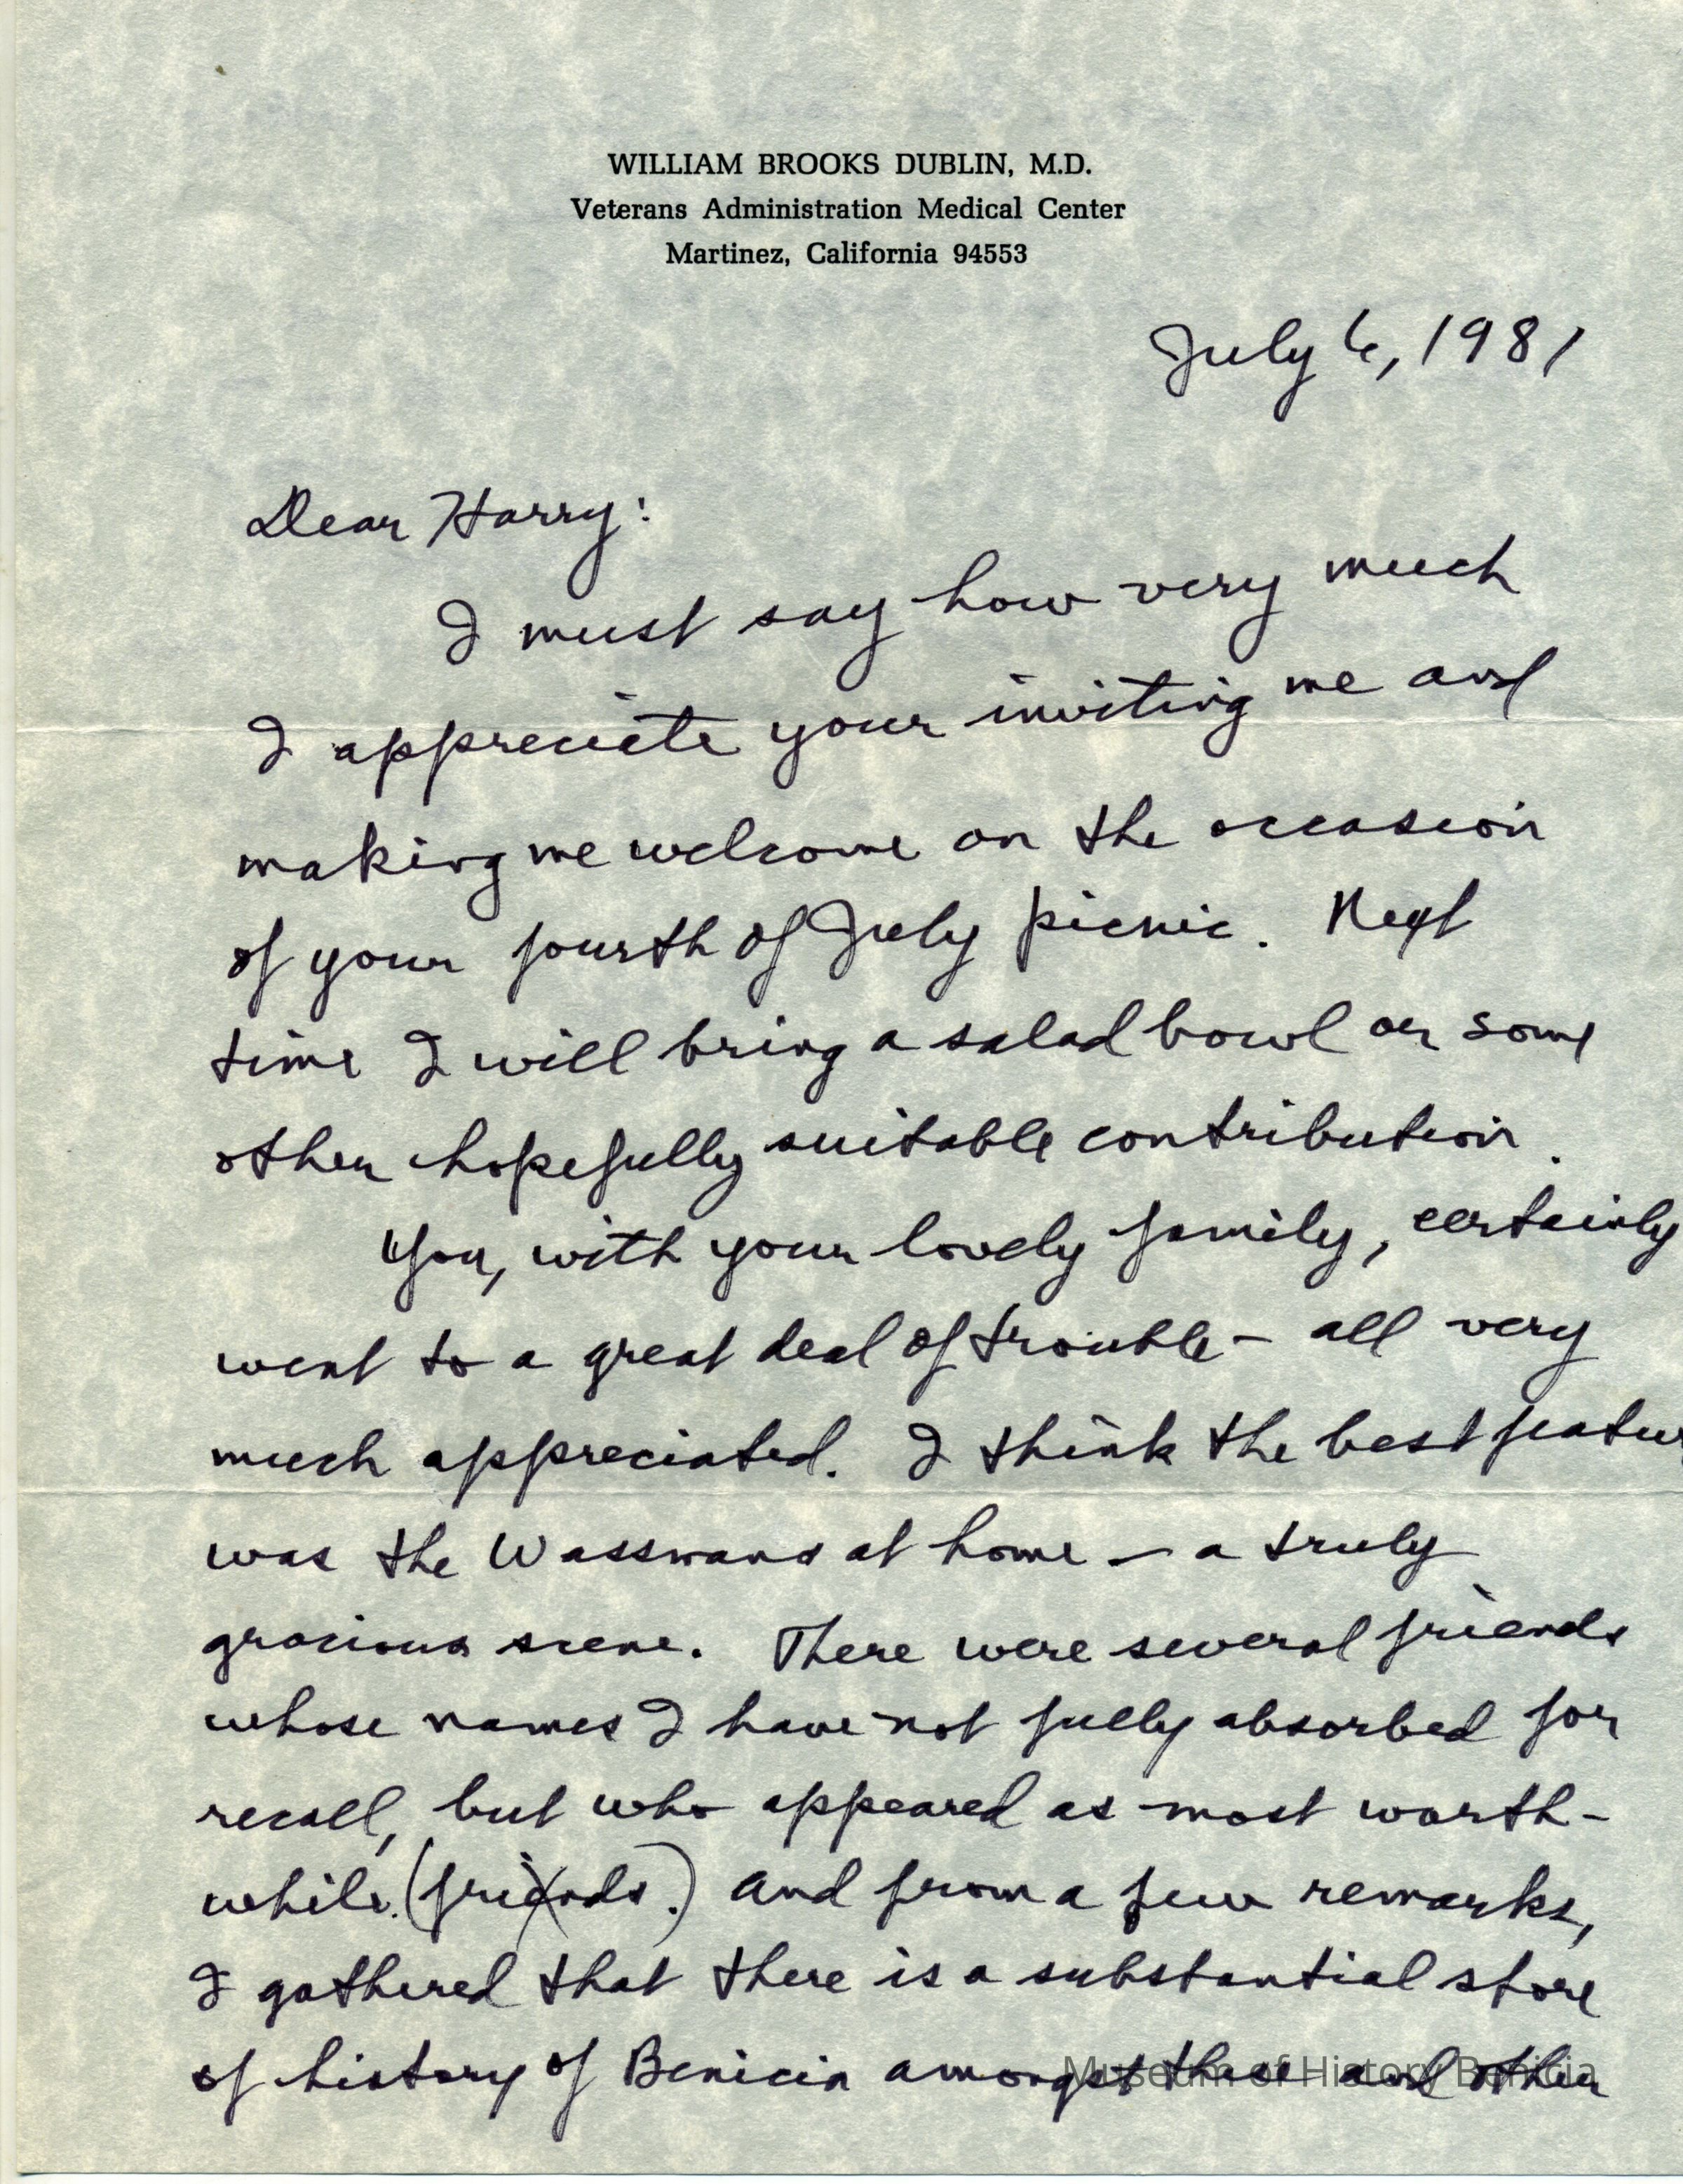 WILLIAM BROOKS DUBLIN, M.D.
Veterans Administration Medical Center
Martinez, California 94553
July 6, 1981
Dear Harry:
I must say how very much
I appreciate your inviting me and
making me welcome on the occasion
of your fourth of July picnic. Next
time I will bring a salad bowl or some
other hopefully suitable contribution.
You, with your lovely family, certainly
went to a great deal of trouble – all very
much appreciated. I think the best featur
was the Wassmans at home – a truly
gracious scene. There were several friends
whose names I have not fully absorbed for
recall, but who appeared as most worth-
while. (friends.) And from a few remarks,
I gathered that there is a substantial store
of history of Benicia amongst these and other
Museum of History Benicia